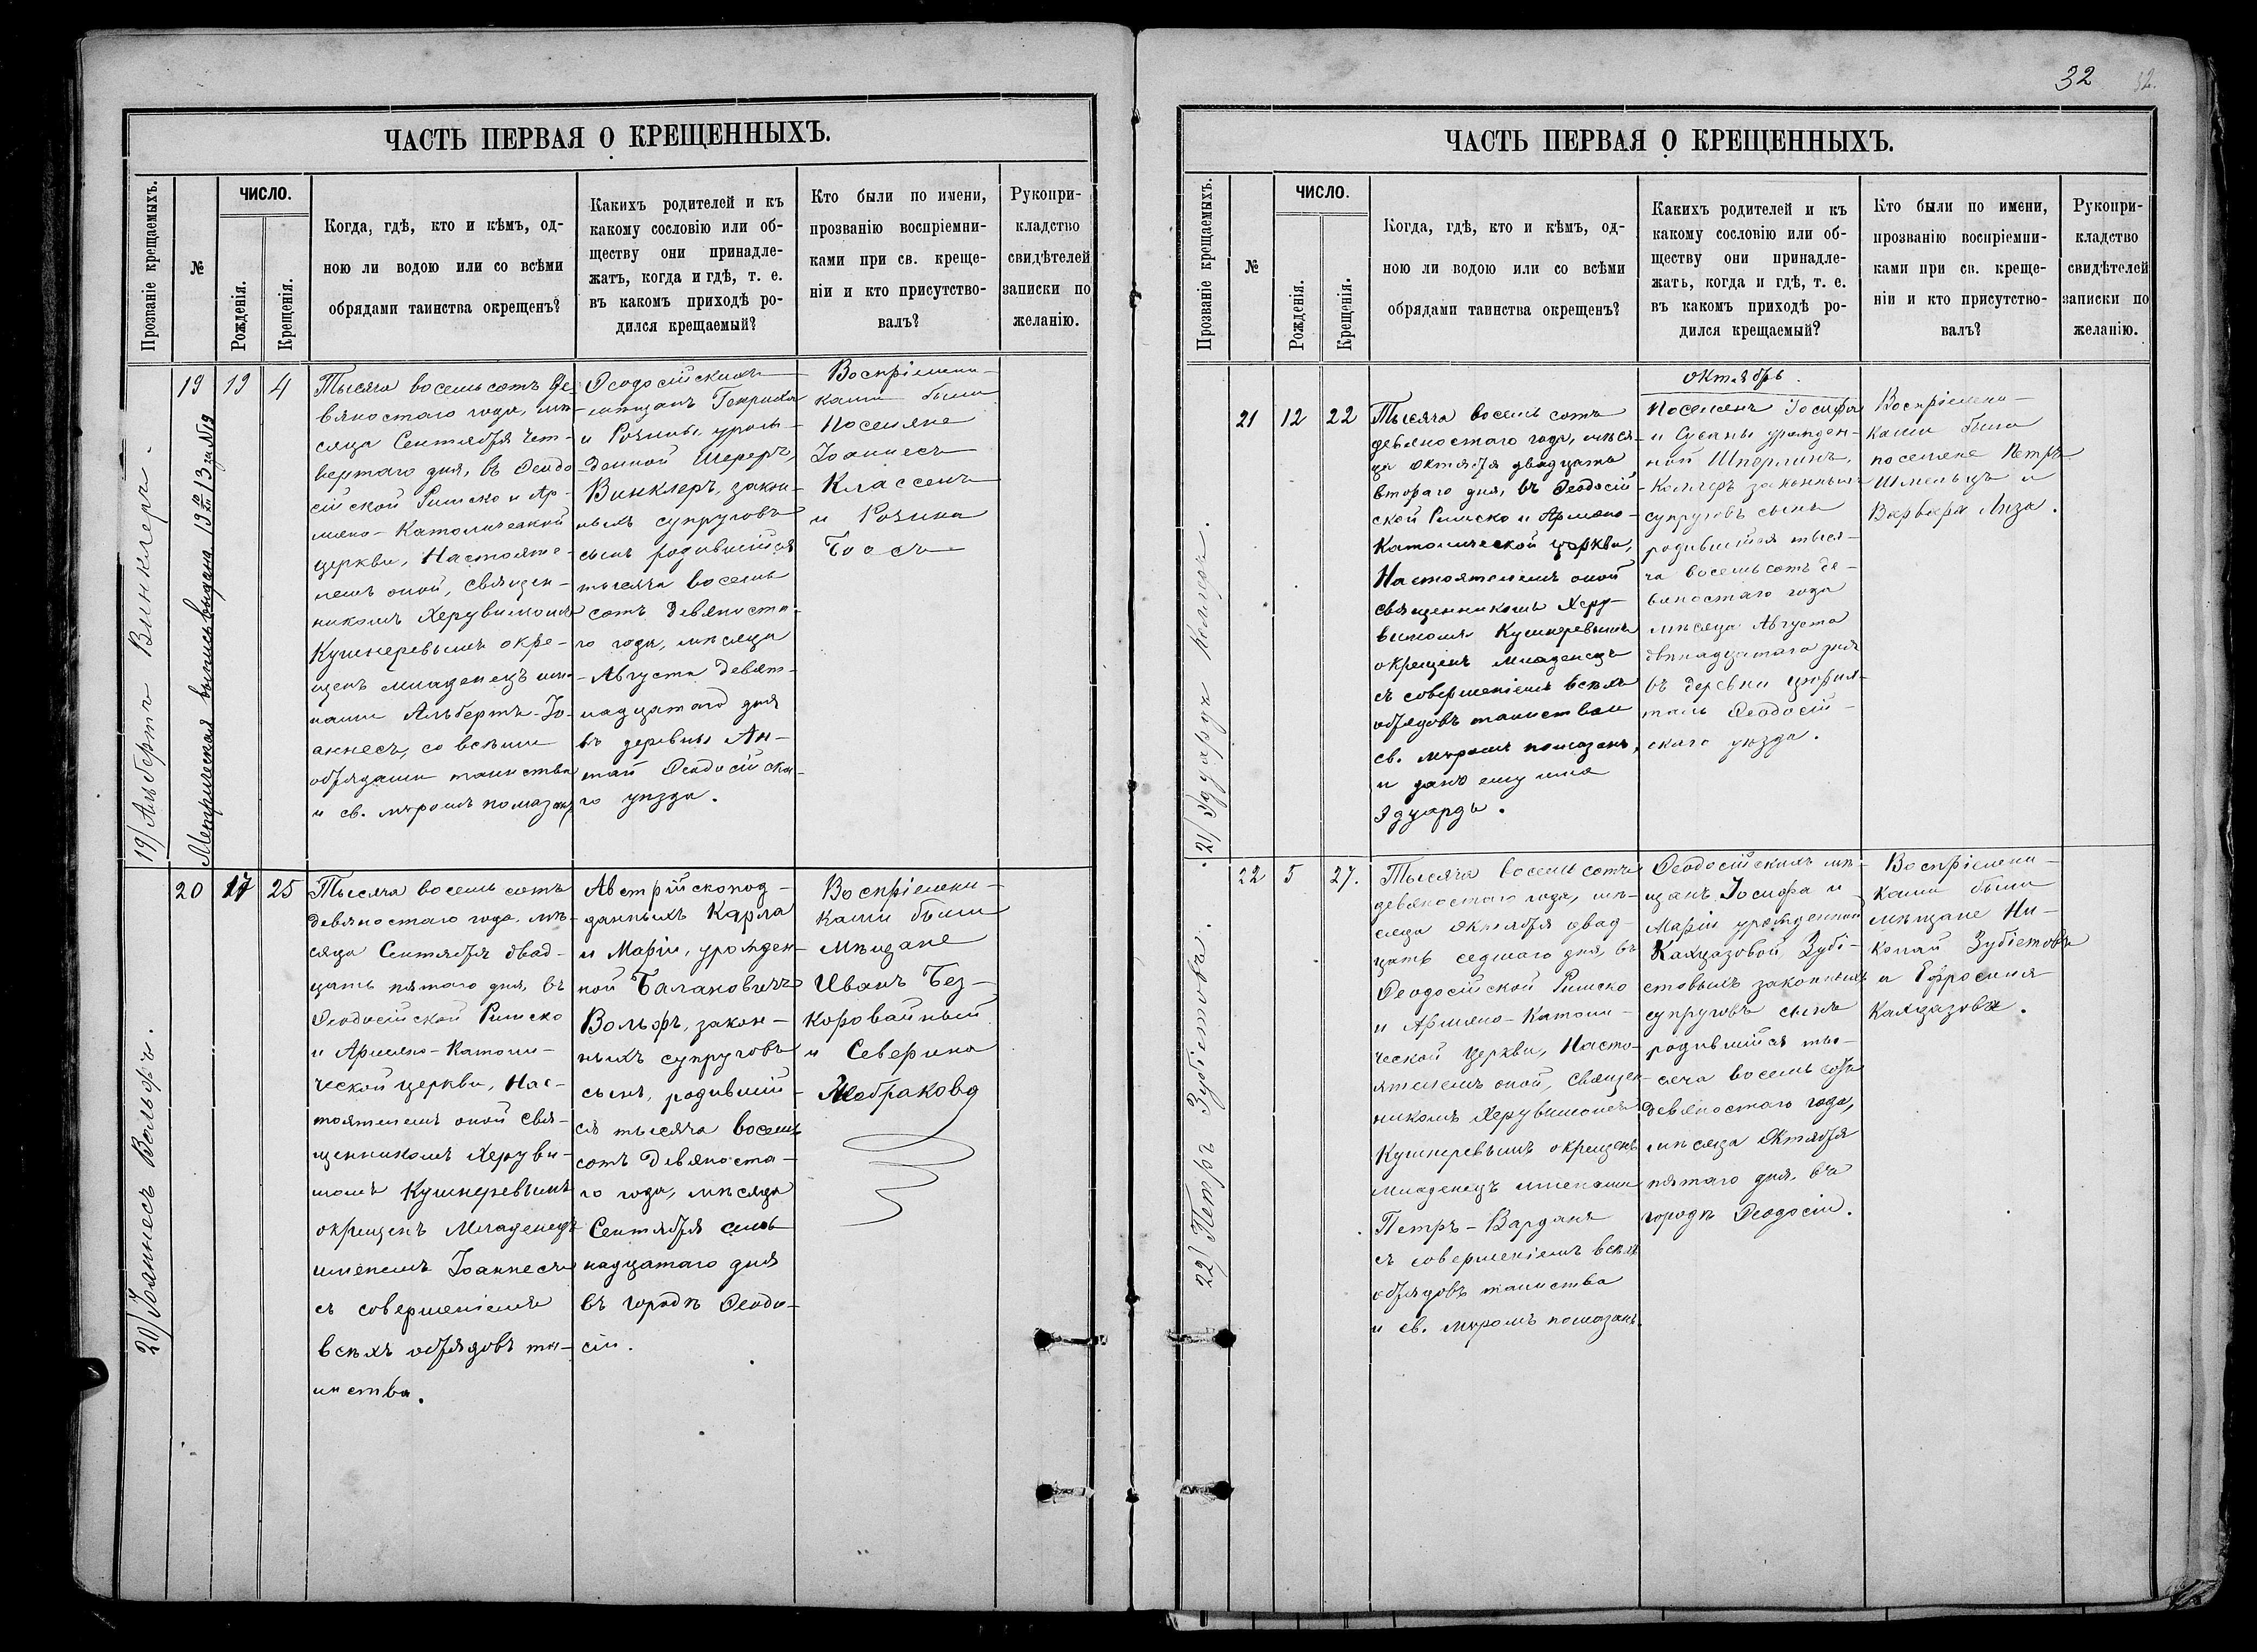 ЧАСТЬ ПЕРВАЯ О КРЕЩЕННЫХЪ.
Прозваніе крещаемыхъ.
№
ЧИСЛО.
Рожденія.
Крещенія.
Когда, гдѣ, кто и кѣмъ, од-
ною ли водою или со всѣми
обрядами таинства окрещенъ?
Какихъ родителей и къ
какому сословію или об-
ществу они принадле-
жатъ, когда и гдѣ, т. е.
въ какомъ приходѣ ро-
дился крещаемый?
Кто были по имени,
прозванію воспріемни-
ками при св. креще-
ніи и кто присутство-
валъ?
Рукопри-
кладство
свидѣтелей
записки по
желанію.
19/ Альбертъ Винклеръ.
Метрическая выпись выдана 19 10/III 13 за №19
19
19
4
Тысяча восемьсотъ де-
вяностаго года, мѣ-
сяца Сентября чет-
вертаго дня, въ Ѳеодо
сійской Римско и Ар-
мяно-Католической
церкви, Настояте-
лемъ оной, священ-
никомъ Херувимомъ
Кушнеревымъ окре-
щенъ младенецъ име-
нами Альбертъ-Іо-
аннесъ, со всѣми
обрядами таинства
и св. мѵромъ помазанъ
Ѳеодосійскихъ
мѣщанъ Генриха
и Розины, урож-
денной Шереръ,
Винклеръ, закон-
ныхъ супруговъ
сынъ родившійся
тысяча восемь
сотъ девяноста-
го года, мѣсяца
Августа девят-
надцатаго дня
въ деревни Ан-
тай Ѳеодосійска-
го уѣзда.
Воспріемни-
ками были
Поселяне
Іоаннесъ
Классенъ
и Розина
Боосъ
20/ Іоаннесъ Вольфъ.
20
17
25
Тысяча восемь сотъ
девяностаго года, мѣ-
сяца Сентября двад-
цать пятаго дня, въ
Ѳеодосійской Римско
и Армяно-Католи-
ческой церкви, Нас-
тоятелемъ оной свя-
щенникомъ Херуви-
момъ Кушнеревымъ
окрещенъ Младенецъ
именемъ Іоаннесъ
съ совершеніемъ
всѣхъ обрядовъ та-
инства.
Австрійскопод-
данныхъ Карла
и Маріи, урожден-
ной Балановичъ
Вольфъ, закон-
ныхъ супруговъ
сынъ, родившій-
ся тысяча восемь
сотъ девяноста-
го года, мѣсяца
Сентября сем-
надцатаго дня
въ городѣ Ѳеодо-
сіи.
Воспріемни-
ками были
Мѣщане
Иванъ Без-
коровайный
и Северина
Мебракова
32
32.
ЧАСТЬ ПЕРВАЯ О КРЕЩЕННЫХЪ.
Прозваніе крещаемыхъ.
№
ЧИСЛО.
Рожденія.
Крещенія.
Когда, гдѣ, кто и кѣмъ, од-
ною ли водою или со всѣми
обрядами таинства окрещенъ?
Какихъ родителей и къ
какому сословію или об-
ществу они принадле-
жатъ, когда и гдѣ, т. е.
въ какомъ приходѣ ро-
дился крещаемый?
Кто были по имени,
прозванію воспріемни-
ками при св. креще-
ніи и кто присутство-
валъ?
Рукопри-
кладство
свидѣтелей
записки по
желанію.
Октябрь.
21/ Эдуардъ
21
12
22
Тысяча восемь сотъ
девяностаго года, мѣся-
ца Октября двадцать
втораго дня, въ Ѳеодосій-
ской Римско и Армяно-
Католической церкви,
Настоятелемъ оной
священникомъ Херу-
вимомъ Кушнеревымъ
окрещенъ младенецъ
съ совершеніемъ всѣхъ
обрядовъ таинства и
св. мѵромъ помазанъ,
и данъ ему имя
Эдуардъ.
Поселянъ Іосифа
и Сусаны урожден-
ной Шперлинъ,
законныхъ
супруговъ сынъ
родившійся тыся-
ча восемьсотъ де-
вяностаго года
мѣсяца Августа
двѣнадцатаго дня
въ деревни Цюрих-
таль Ѳеодосій-
скаго уѣзда.
Воспріемни-
ками были
поселяне Петръ
Шмельцъ и
Варвара Лиза.
22/ Петръ Зубіетовъ.
22
5
27.
Тысяча восемь сотъ
девяностаго года, мѣ-
сяца Октября двад-
цать седмаго дня, въ
Ѳеодосійской Римско
и Армяно-Католи-
ческой Церкви, Насто-
ятелемъ оной, Священ
никомъ Херувимомъ
Кушнеревымъ окрещенъ
младенецъ именами
Петръ-Варданъ
съ совершеніемъ всѣхъ
обрядовъ таинства
и св. мѵромъ помазанъ.
Ѳеодосійскихъ мѣ-
щанъ Іосифа и
Маріи урожденной
Калцазовой, Зубі-
етовыхъ законныхъ
супруговъ сынъ
родившійся ты-
сяча восемь сотъ
девяностаго года,
мѣсяца Октября
пятаго дня, въ
городѣ Ѳеодосіи.
Воспріемни-
ками были
мѣщане Ни-
колай Зубіетовъ
и Ефросинія
Калцазова.